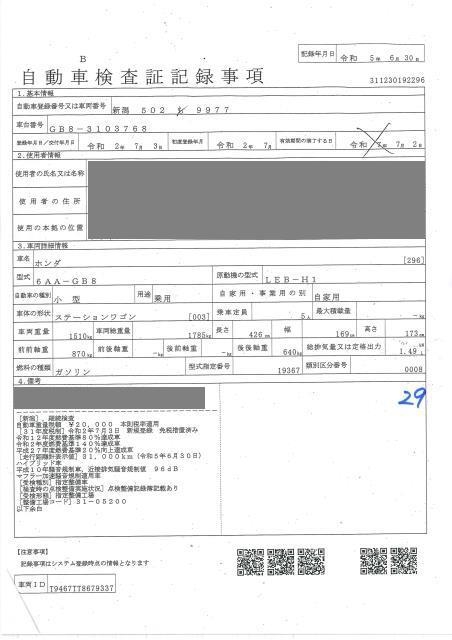 B
記録年月日 令和 5年 6月30日
自動車検査証記録事項
311230192296
1.基本情報
自動車登録番号又は車両番号 新潟 502 9977
車台番号 GB8-3103768
登録年月日/交付年月日 令和 2年 7月 3日 初度登録年月 令和 2年 7月 有効期間の満了する日 令和 7年 7月 2日
2.使用者情報
使用者の氏名又は名称
使用者の住所
使用の本拠の位置
3.車両詳細情報
車名 ホンダ [296]
型式 6AA-GB8 原動機の型式 LEB-H1
自動車の種別 小型 用途 乗用 自家用・事業用の別 自家用
車体の形状 ステーションワゴン [003] 乗車定員 5人 最大積載量 -kg
車両重量 1510kg 車両総重量 1785kg 長さ 426cm 幅 169cm 高さ 173cm
前前軸重 870kg 前後軸重 -kg 後前軸重 -kg 後後軸重 640kg 総排気量又は定格出力 1.49L
燃料の種類 ガソリン 型式指定番号 19367 類別区分番号 0008
4.備考
29
[新潟],継続検査
自動車重量税額 ¥20,000 本則税率適用
[31年度税制]令和2年7月3日 新規登録 免税措置済み
令和12年度燃費基準80%達成車
令和2年度燃費基準140%達成車
平成27年度燃費基準20%向上達成車
[走行距離計表示値]31,000km(令和5年6月30日)
ハイブリッド車
平成10年騒音規制車,近接排気騒音規制値 96dB
マフラー加速騒音規制適用車
[受検種別]指定整備車
[検査時の点検整備実施状況]点検整備記録簿記載あり
[受検形態]指定整備工場
[整備工場コード]31-05200
以下余白
【注意事項】
記録事項はシステム登録時点の情報となります
車両ID T9467TT8679337